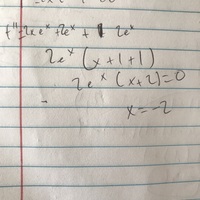 f''=2xe^x+2e^x + 2e^x
2e^x (x+1+1)
2e^x (x+2)=0
x=-2